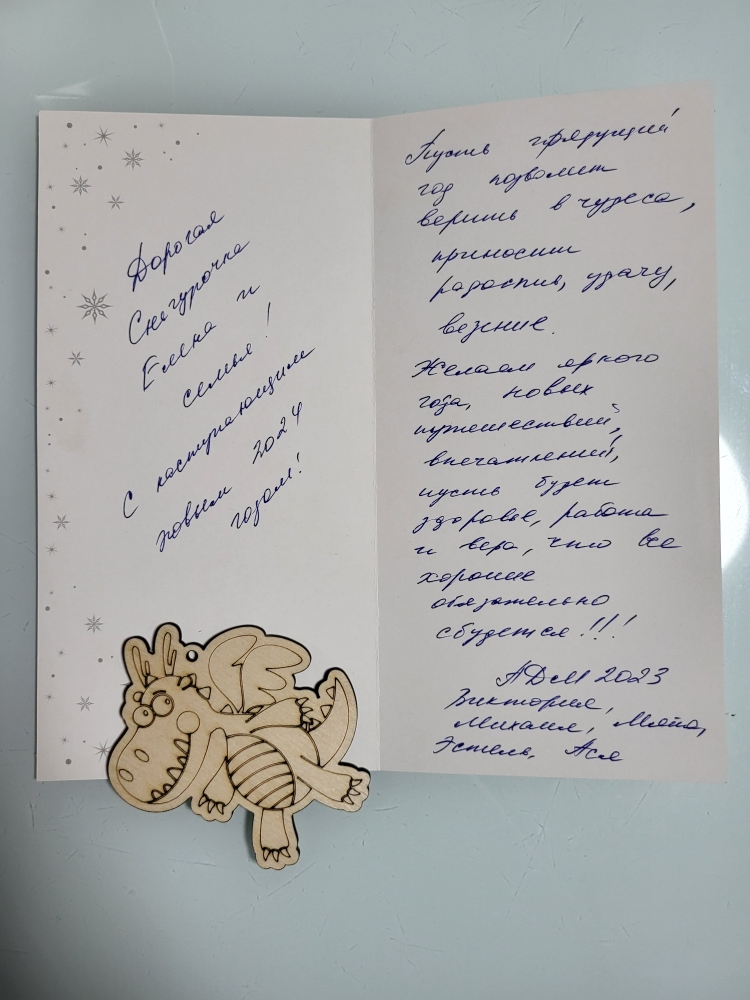 Дорогая
Снегурочка
Елена и
семья!
С наступающим
новым 2024
годом!
Пусть грядущий
год позволит
верить в чудеса,
приносит
радость, удачу,
везение.
Желаем яркого
года, новых
путешествий,
впечатлений,
пусть будет
здоровье, работа
и вера, что все
хорошее
обязательно
сбудется!!!
АДМ 2023
Виктория,
Михаил,
Эстель, Ася